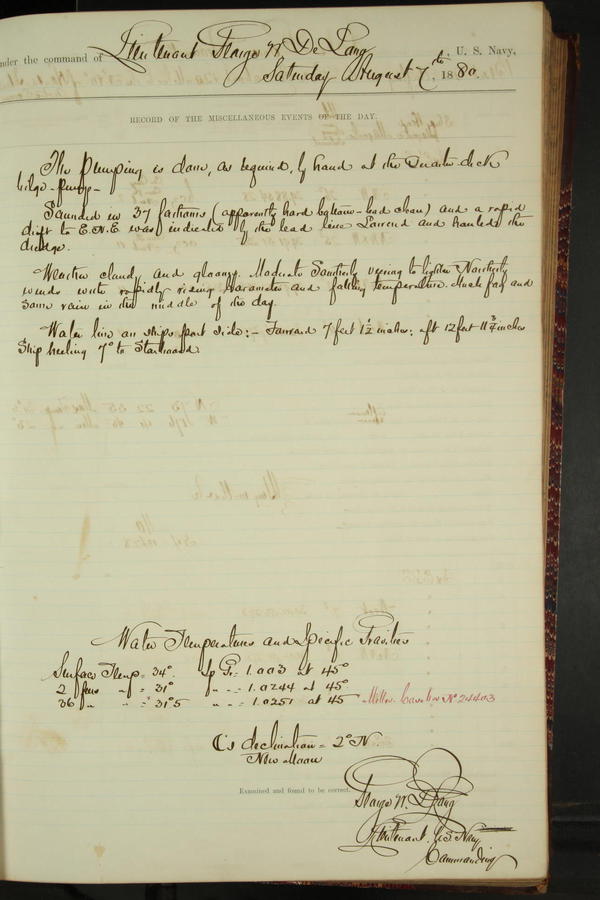 under the command of Lieutenant George W. De Long, U. S. Navy,
Saturday August 7th, 1880.
RECORD OF THE MISCELLANEOUS EVENTS OF THE DAY.
The pumping is done, as required, by hand at the Quarter deck
bilge-pump-
Sounded in 37 fathoms (apparently hard bottom-lead clean) and a rapid
drift to E.N.E was indicated by the lead line Lowered and hauled the
dredge.
Weather cloudy and gloomy. Moderate Southerly veering to lighter Northerly
winds with rapidly rising barometer and falling temperature. Much fog and
some rain in the middle of the day.
Water line on ships port side:- Forward 7 feet 1½ inches; aft 12 feet 11¾ inches
Ship heeling 7° to Starboard.
Water Temperatures and Specific Gravities
Surface Temp = 34°. Sp Gr = 1.003 at 45°
2 fms " = 31° " " = 1.0244 at 45°
36 " " = 31°.5 " " = 1.0251 at 45 Miller Casella No 24403
('s declination = 2° N.
New Moon
Examined and found to be correct.
George W. De Long
Lieutenant U.S. Navy
Commanding